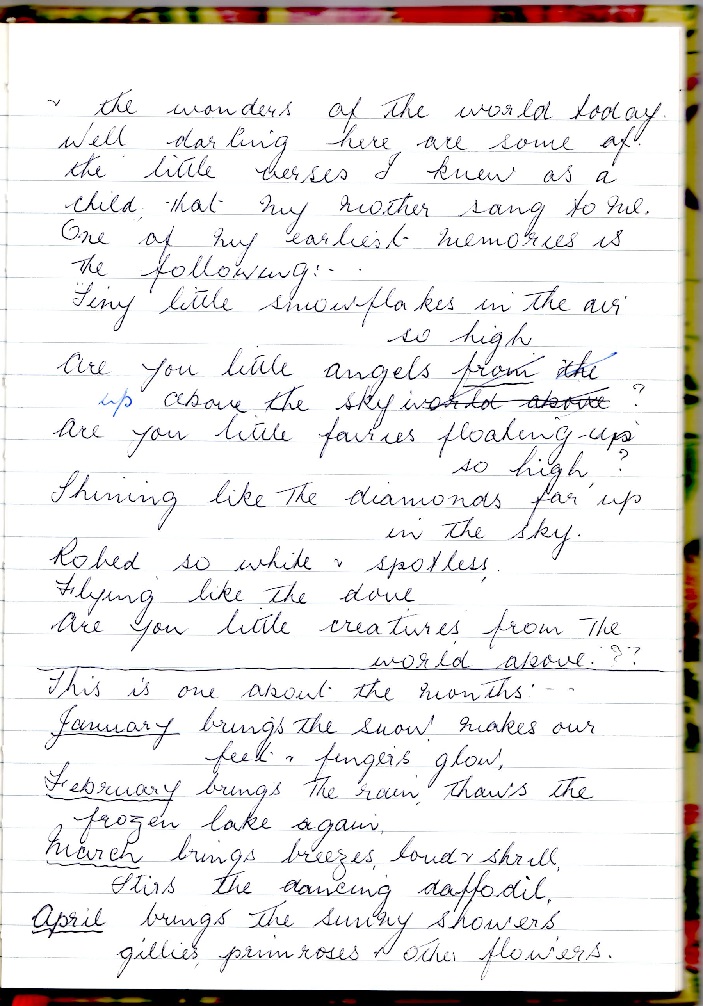 & the wonders of the world today.
Well darling here are some of
the little verses I knew as a
child, that my mother sang to me.
One of my earliest memories is
the following:-
Tiny little snowflakes in the air
so high
Are you little angels from the
up above the sky world above ?
Are you little fairies floating ups
so high ?
Shining like the diamonds far up
in the sky.
Robed so white & spotless,
Flying like the dove
Are you little creatures from the
world above. ??
This is one about the months: - -
January brings the snow, makes our
feet & fingers glow,
February brings the rain, thaws the
frozen lake again,
March brings breezes, loud & shrill,
Stirs the dancing daffodil,
April brings the sunny showers
gillies, primroses & other flowers.